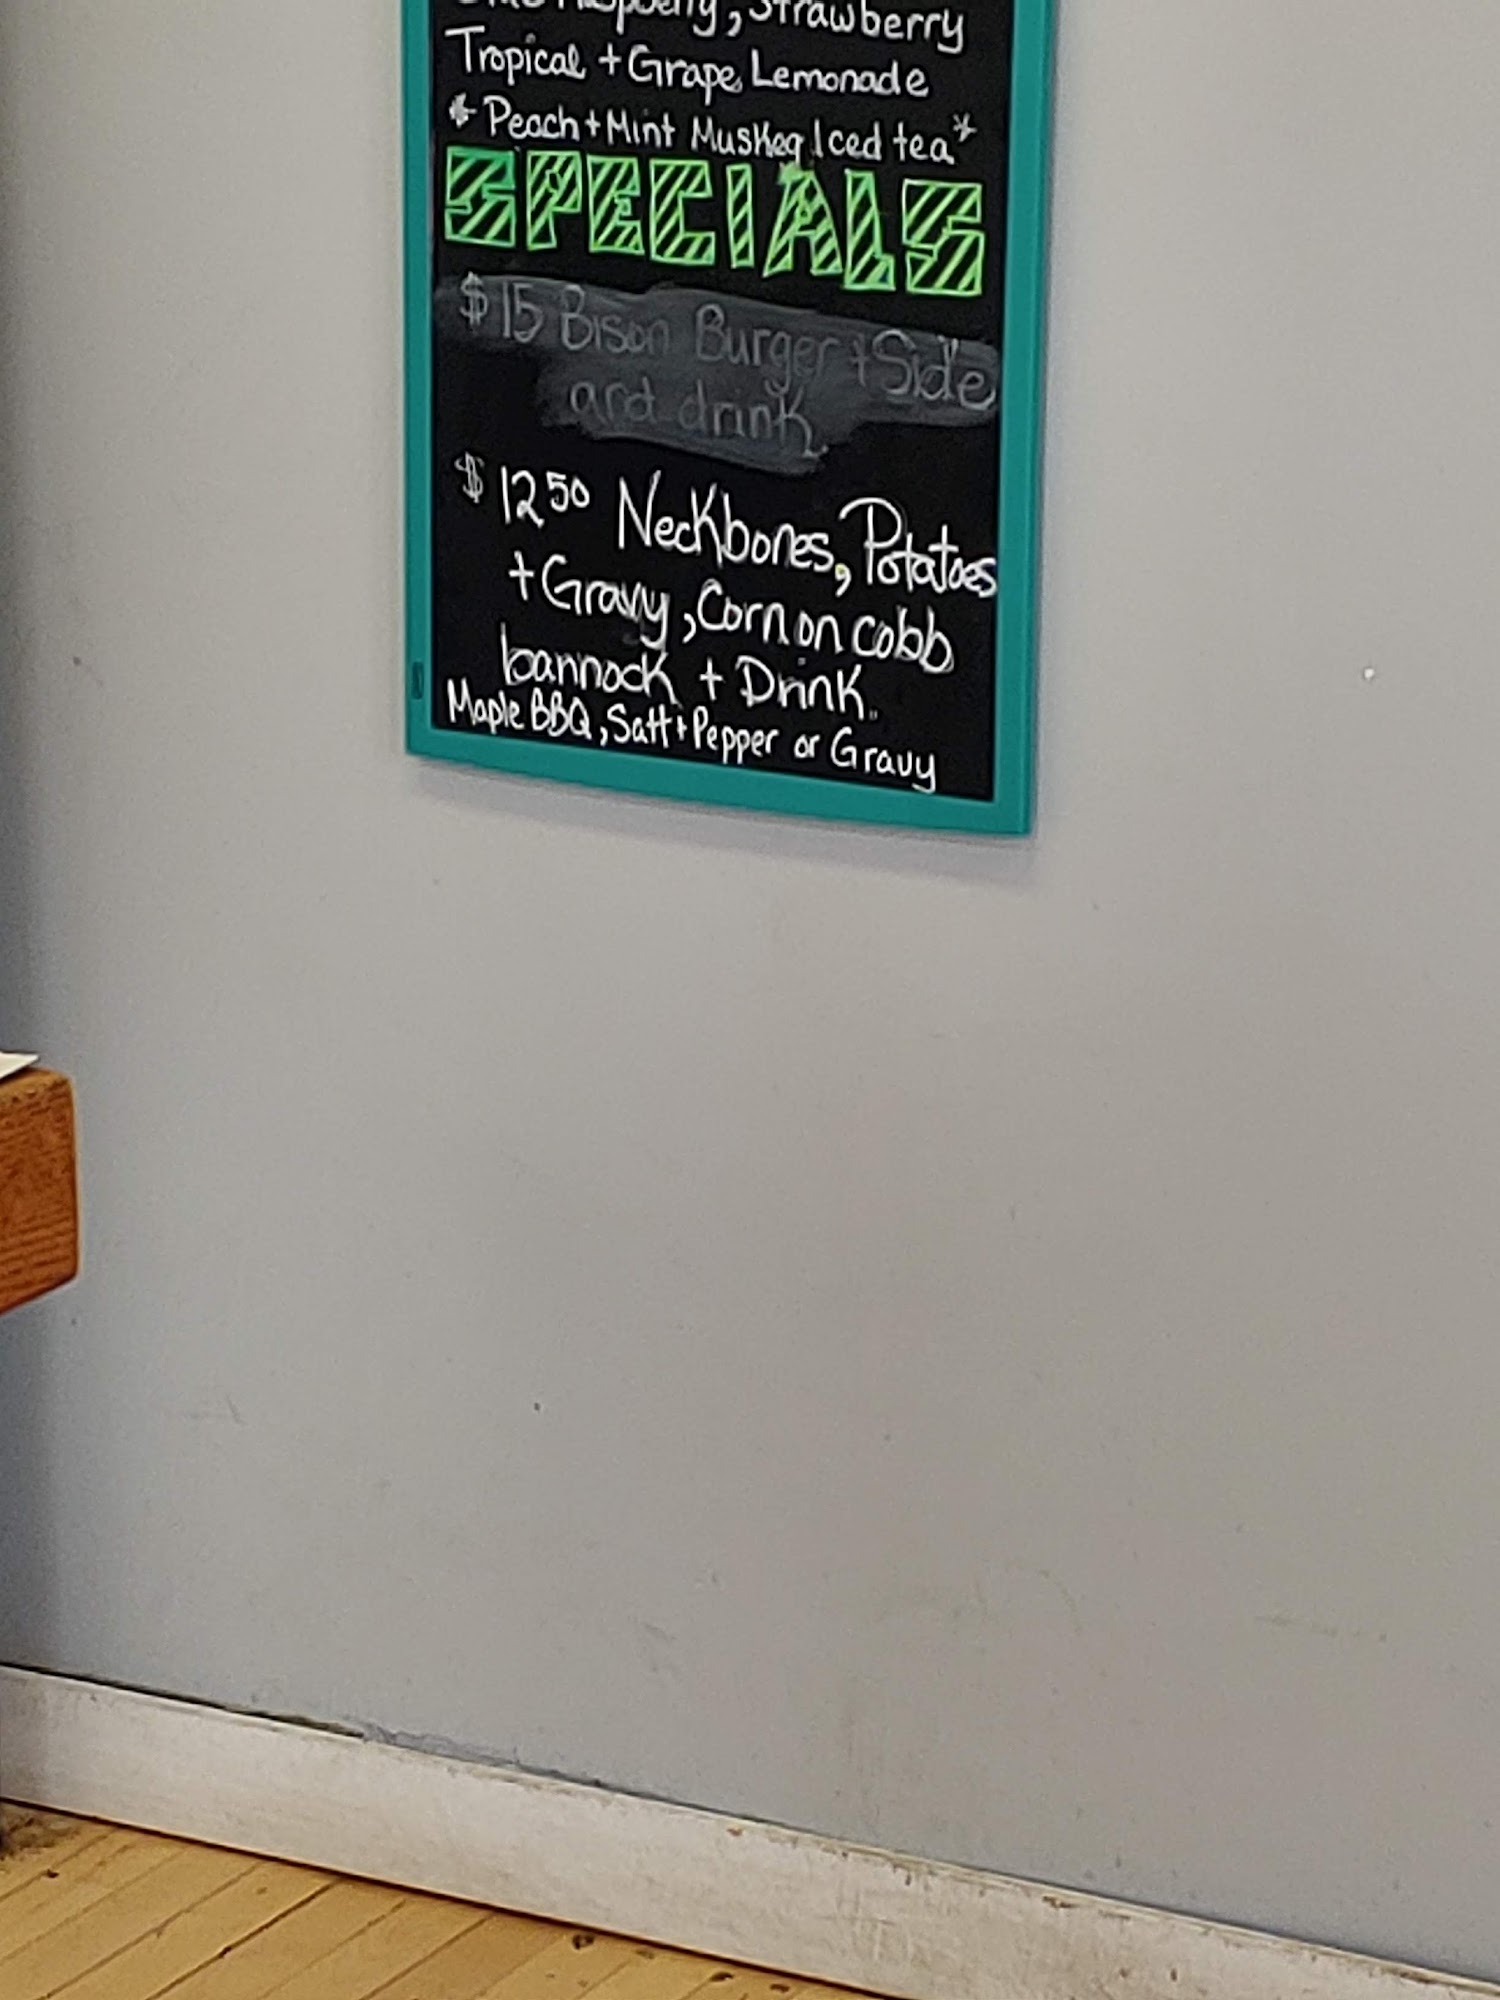 Raspberry, Strawberry
Tropical + Grape Lemonade
* Peach + Mint Muskeg Iced tea *
SPECIALS
$15 Bison Burger + Side
and drink
$12 50 Neckbones, Potatoes
+ Gravy, Corn on cobb
bannock + Drink.
Maple BBQ, Salt + Pepper or Gravy